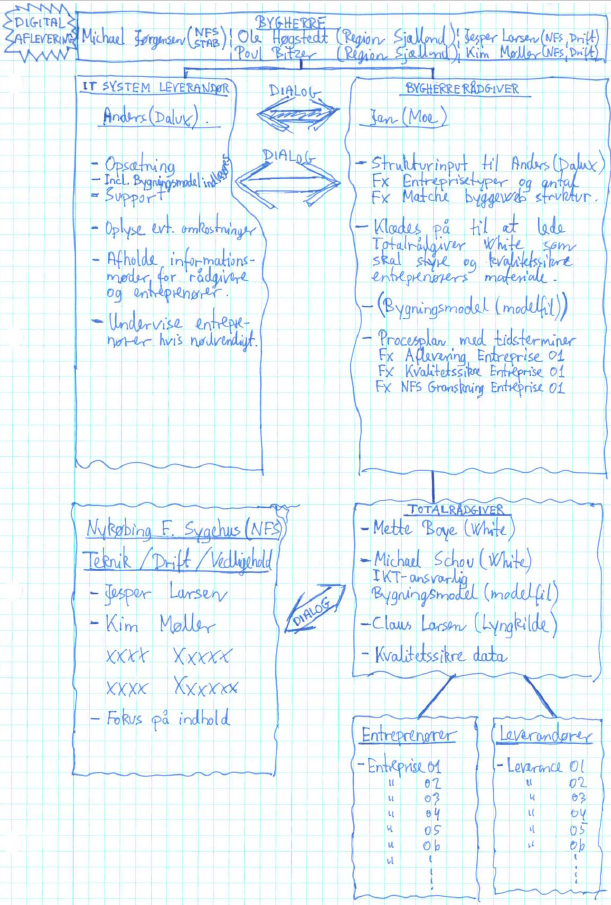 DIGITAL
AFLEVERING
BYGHERRE
Michael Jørgensen (NFS STAB) ¦ Ole Høgstedt (Region Sjælland) ¦ Jesper Larsen (NFS, Drift)
Poul Bitzer (Region Sjælland) ¦ Kim Møller (NFS, Drift)
IT SYSTEM LEVERANDØR
Anders (Dalux).
- Opsætning
- Incl. Bygningsmodel indlæsning
- Support
- Oplyse evt. omkostninger
- Afholde informations-
møder, for rådgivere
og entreprenører.
- Undervise entrepre-
nører hvis nødvendigt.
DIALOG
DIALOG
BYGHERRERÅDGIVER
Jan (Moe)
- Strukturinput til Anders (Dalux)
Fx Entreprisetyper og antal
Fx Matche byggeweb struktur.
- Klædes på til at lede
Totalrådgiver White som
skal styre og kvalitetssikre
entreprenørers materiale.
- (Bygningsmodel (modelfil))
- Procesplan med tidsterminer
Fx Aflevering Entreprise 01
Fx Kvalitetssikre Entreprise 01
Fx NFS Granskning Entreprise 01
Nykøbing F. Sygehus (NFS)
Teknik / Drift / Vedligehold
- Jesper Larsen
- Kim Møller
xxxx Xxxxx
xxxx Xxxxxx
- Fokus på indhold
DIALOG
TOTALRÅDGIVER
- Mette Boye (White)
- Michael Schou (White)
IKT-ansvarlig
Bygningsmodel (modelfil)
- Claus Larsen (Lyngkilde)
- Kvalitetssikre data
Entreprenører
- Entreprise 01
" 02
" 03
" 04
" 05
" 06
"
Leverandører
- Leverance 01
" 02
" 03
" 04
" 05
" 06